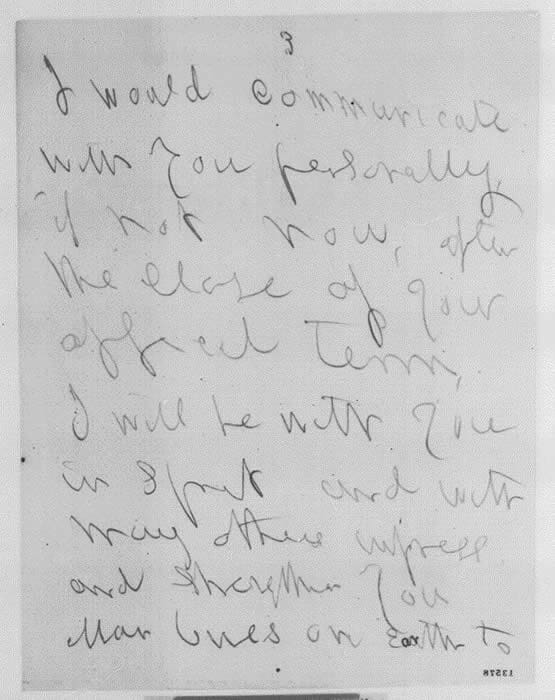 3
I would communicate
with You personally,
if not now, after
the close of your
official Term,
I will be with You
in Spirit and with
many others impress
and strengthen You
Man lives on Earth to
13578